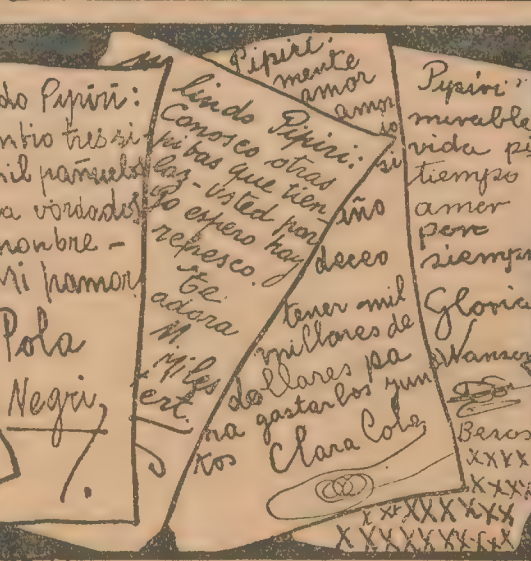 do Pipiri:
mbio tres si
mil pañuelos
a vordados
nombre -
Mi pamor
Pola
Negri
lindo Pipiri:
Conosco otras
pibas que tien
laz - usted por
lo espero hay
represeo.
te
adora
M.
Miles
ert.
Pipiri:
mente
amor
amor
io
si
iño
deceo
tener mil
millares de
dollares pa
ra gastarlos jun
tos
Clara Cole
Pipiri:
mirable
vida pi
tiempo
amer
pere
siempre
Gloria
Wanson
Besos
xxxx
XXXXX
x xxXXXXXX
XXXXXXXXXX